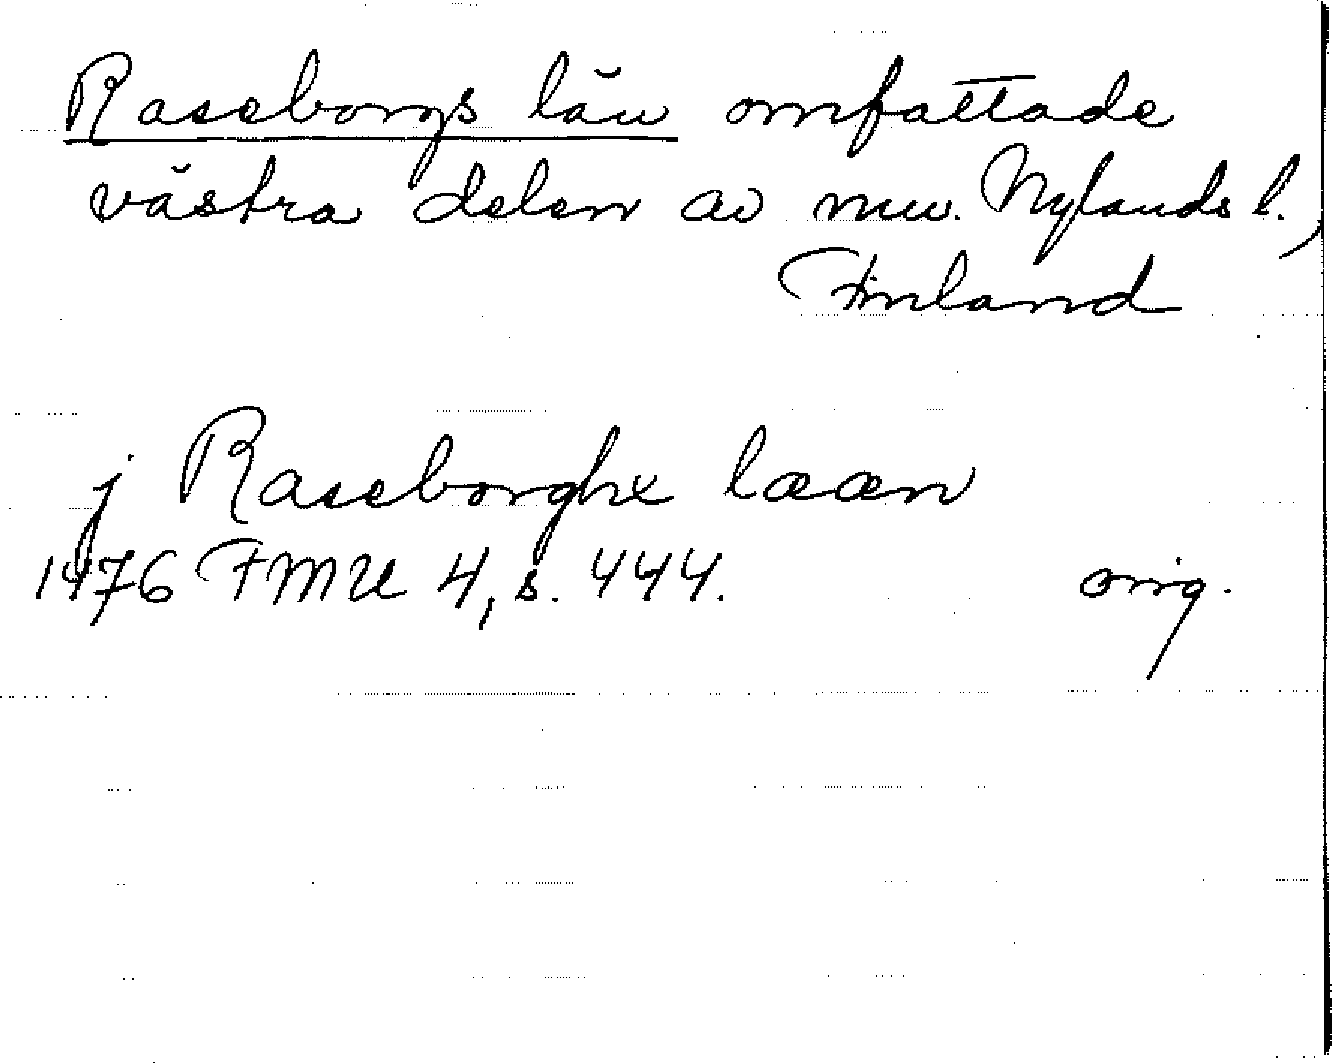 Raseborgs län omfattade
västra delen av nuv. Nylands l.,
Finland
j Raseborghx lææn
1476 FMU 4, s. 444. orig.